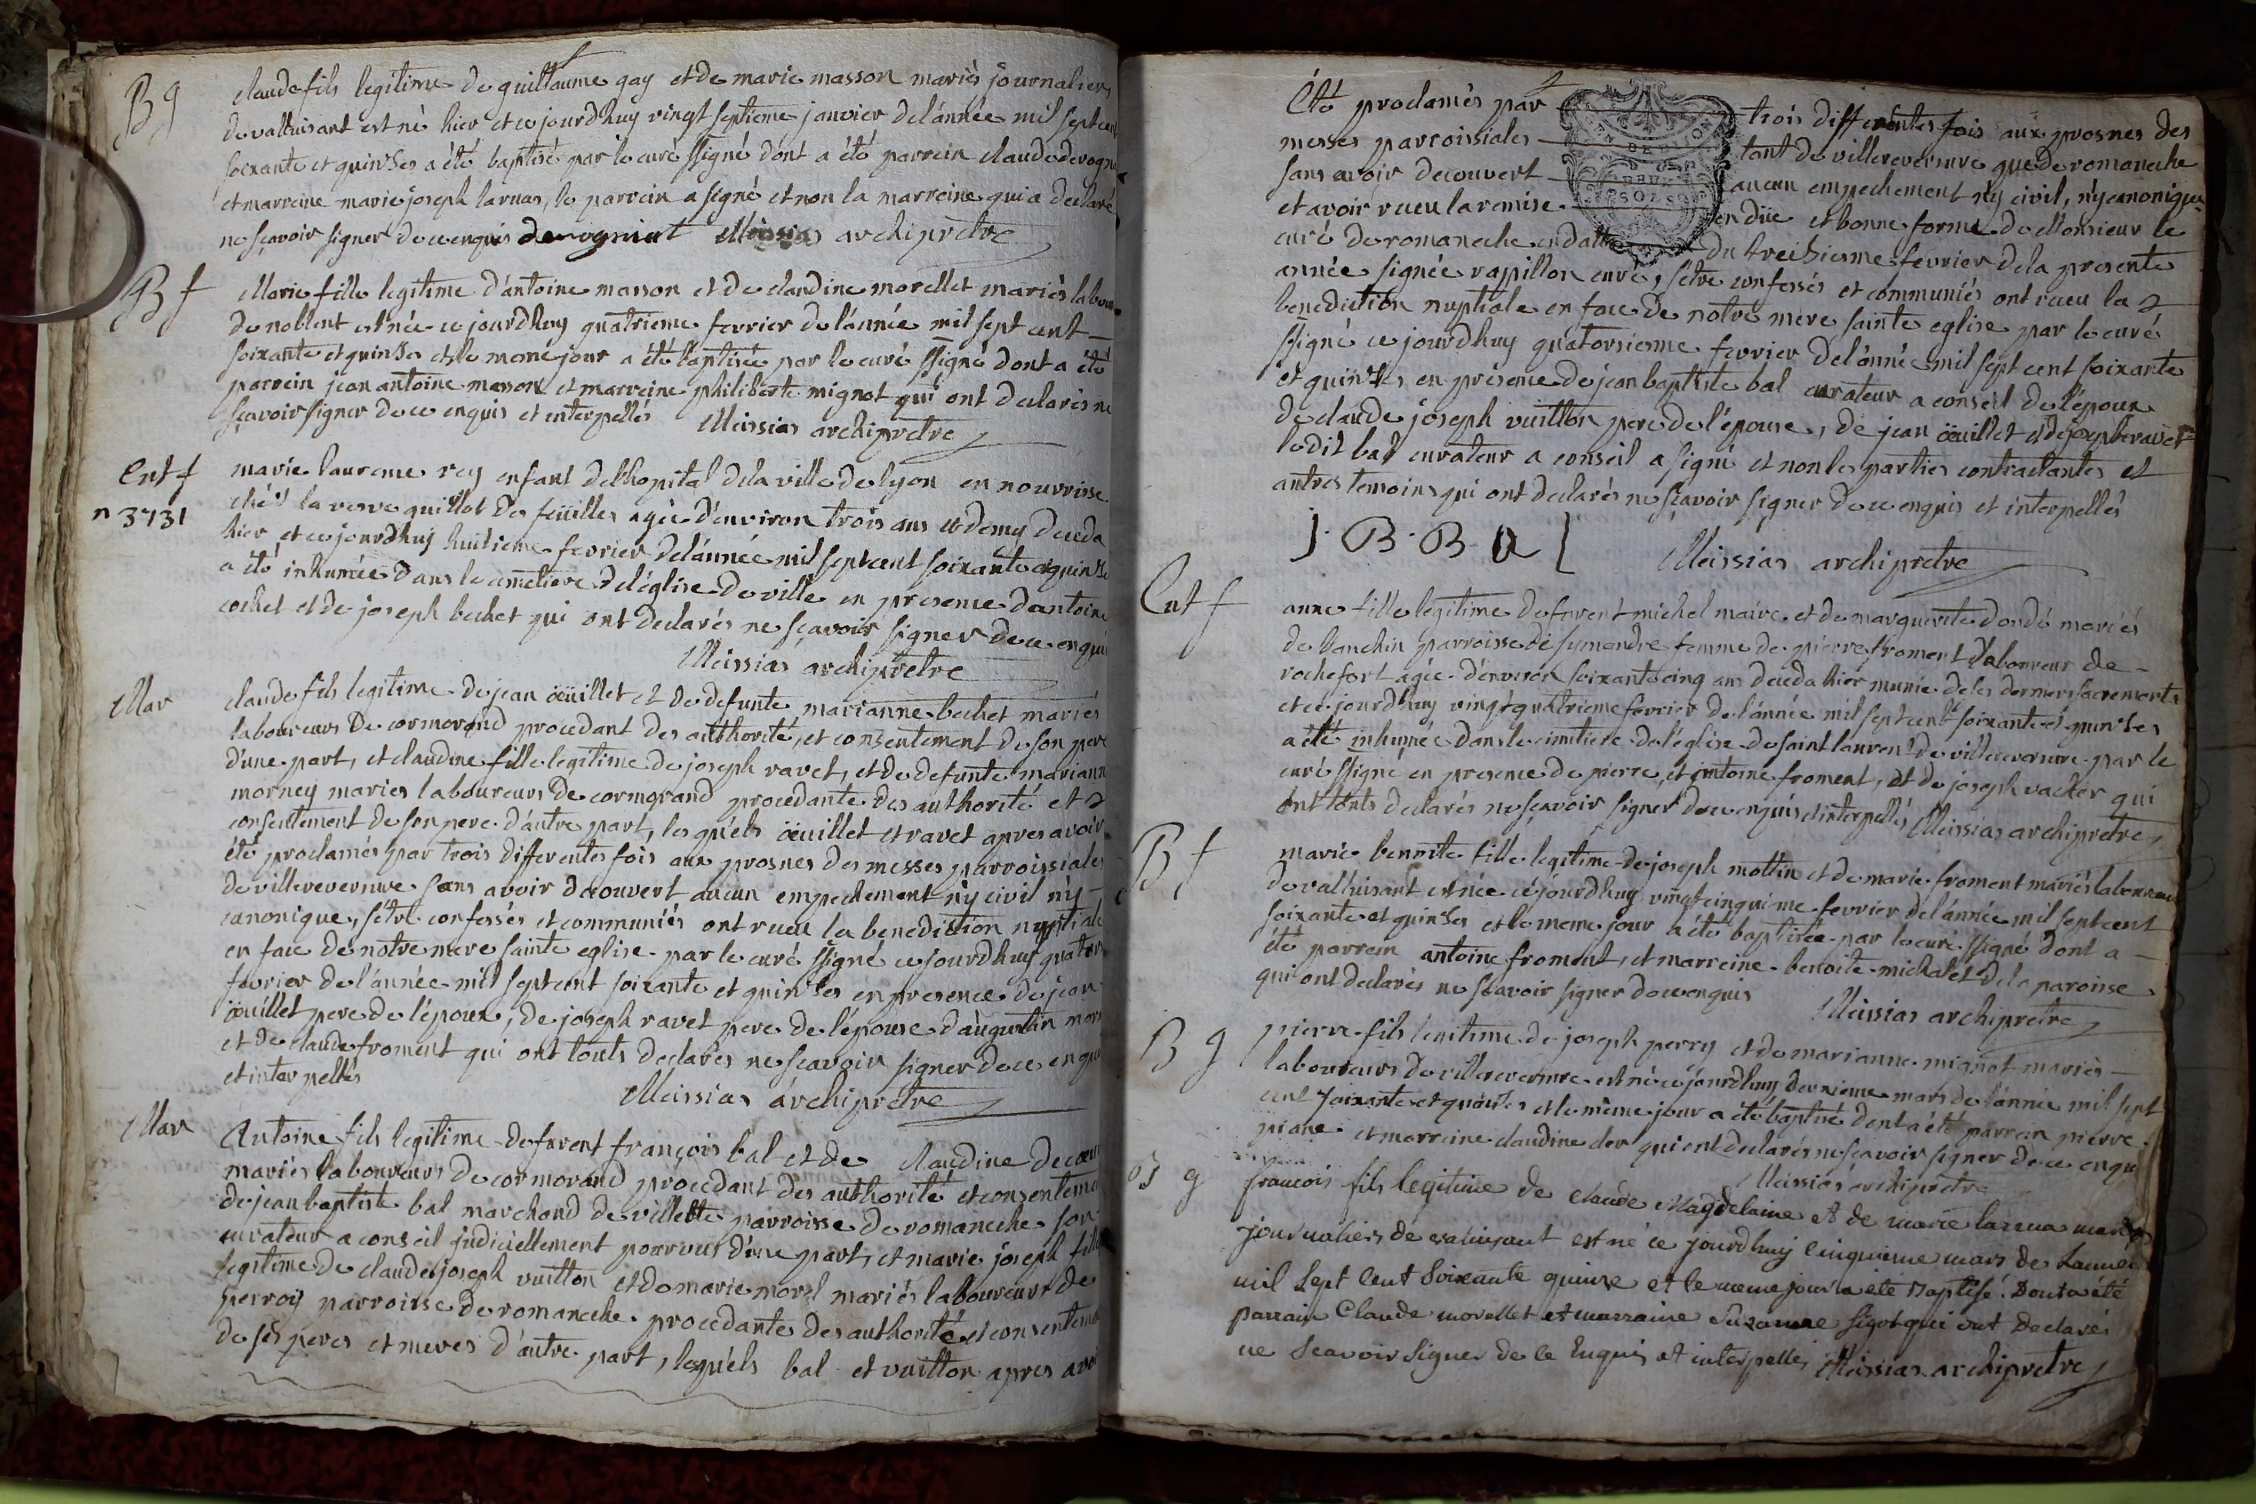 B g
claude fils legitime de guillaume gay et de marie masson mariés journaliers
de valluisant est né hier et ce jourdhuy vingt septieme janvier de l'année mil sept cent
soixante et quinses a été baptisé par le curé ssigné dont a été parrein claude
et marreine marie joseph laruas, le parrein a signé et non la marreine qui a declaré
ne sçavoir signer de ce enquis Meissias archipretre
B f
Marie fille legitime d'antoine masson et de claudine morellet mariés
de noblent est née ce jourdhuy quatrieme fevrier de l'année mil sept cent
soixante et quinses et le meme jour a été baptisée par le curé ssigné dont a été
parrein jean antoine masson et marreine philiberte mignot qui ont declarés ne
sçavoir signer de ce enquis et interpellés Meissias archipretre
Ent f
n 3731
marie laurence rey enfant de l'hopital de la ville de lyon en nourrisse
chés la veuve guillot des feüilles agée d'environ trois ans et demy deceda
hier et ce jourdhuy huitieme fevrier de l'année mil sept cent soixante et quinse
a été inhumée dans le cimetiere de l'église de ville en presence d'antoine
cochet et de joseph bechet qui ont declarés ne sçavoir signer de ce enquis
Meissias archipretre
Mar
claude fils legitime de jean öeüillet et de defunte marianne bechet mariés
laboureurs de cormorand procedant des authorité, et consentement de son pere
d'une part, et claudine fille legitime de joseph ravet, et de defunte mariann
morney mariés laboureurs de cormorand procedante des authorité et
consentement de son pere d'autre part, les quels öeuillet et ravet apres avoir
été proclamés par trois differentes fois aux prosnes des messes parroissiales
de villereversure sans avoir decouvert aucun empechement n'y civil n'y
canonique, s'etre confessés et communiés ont receu la benediction nuptiale
en face de notre mere sainte eglise par le curé ssigné ce jourdhuy quator
fevrier de l'année mil sept cent soixante et quinses en presence de jean
öeuillet pere de l'époux, de joseph ravet pere de l'épouse d'augustin mor
et de claude froment qui ont touts declarés ne sçavoir signer de ce enquis
et interpellés
Meissias archipretre
Mar
Antoine fils legitime de favent françois bal et de claudine
mariés laboureurs de cormorand procedant des authorité et consenteme
de jean baptiste bal marchand de villette parroisse de romaneche son
curateur a conseil judiciellement pourvus d'une part, et marie joseph fille
legitime de claude joseph vuitton et de marie morel mariés laboureurs de
perroy parroisse de romaneche procedante des authorité et consenteme
de ses peres et meres d'autre part, lesquels bal et vuitton apres avoir
été proclamés par trois differentes fois aux prosnes des
messes parroissiales tant de villereversure que de romaneche
sans avoir decouvert aucun empechement n'y civil, n'y canonique
et avoir receu la remise en düe et bonne forme de Monsieur le
curé de romaneche en datte du treisieme fevrier de la presente
année signée rapillon curé, s'etre confessés et communiés ont receu la
benediction nuptiale en face de notre mere sainte eglise par le curé
ssigné ce jourdhuy quatorsieme fevrier de l'année mil sept cent soixante
et quinses en presence de jean baptiste bal curateur a conseil de l'époux
de claude joseph vuitton pere de l'épouse, de jean öeuillet et de joseph ravet
ledit bal curateur a conseil a signé et non les parties contractantes et
autres temoins qui ont declarés ne sçavoir signer de ce enquis et interpellés
J. B. B a l
Meissias archipretre
Ent f
anne fille legitime de favent michel maire et de marguerite dondé mariés
de banchin parroisse de simandre femme de pierre froment laboureur de
rochefort agée d'environ soixante cinq ans deceda hier munie de les derniers sacrements
et ce jourdhuy vingt quatrieme fevrier de l'année mil sept cent soixante et quinses
a été inhumée dans le cimitiere de l'église de saint laurent de villereversure par le
curé ssigné en presence de pierre, et antoine froment, et de joseph vacher qui
ont touts declarés ne sçavoir signer de ce enquis et interpellés Meissias archipretre
B f
marie benoite fille legitime de joseph mottin et de marie froment mariés laboureurs
de valluisant est née ce jourdhuy vingt cinquieme fevrier de l'année mil sept cent
soixante et quinses et le meme jour a été baptisée par le curé ssigné dont a
été parrein antoine froment, et marreine benoite michalet de la paroisse
qui ont declarés ne sçavoir signer de ce enquis
Meissias archipretre
B g
pierre fils legitime de joseph perry et de marianne mignot mariés
laboureurs de villereversure est né ce jourdhuy deuxieme mars de l'année mil sept
cent soixante et quinses et le même jour a été baptisé dont a été parrein pierre
et marreine claudine qui ont declarés ne sçavoir signer de ce enquis
Meissias archipretre
B g
francois fils legitime de claude Magdelaine et de marie larrua mariés
journaliers de valuisant est né ce jourdhuy cinquieme mars de Lannée
mil sept Cent Soixante quinze et le meme jour a ete Baptisé. Dont a été
parrain Claude morellet et marraine Suzanne Sigot qui ont Declarés
ne Scavoir Signer de ce Enquis et interpellés Meissias archipretre